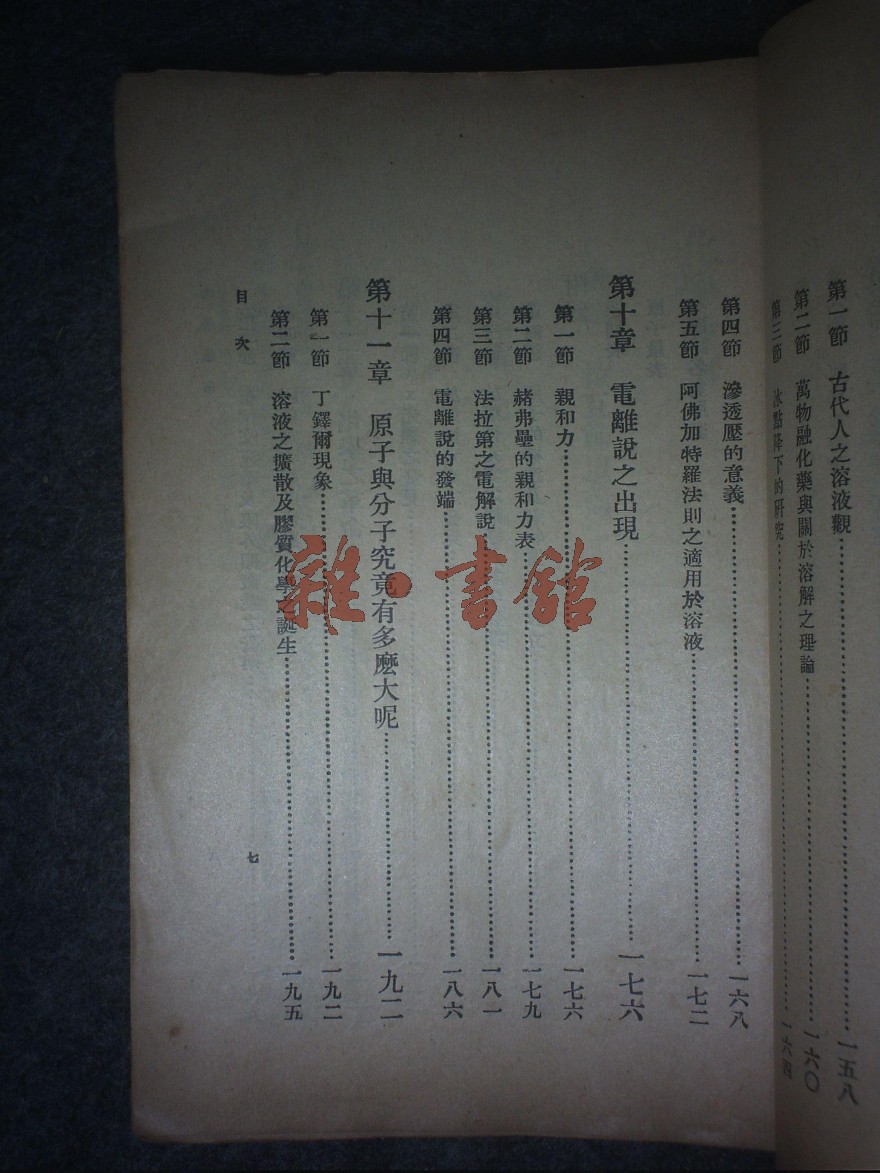 第一節 古代人之溶液觀……一五八
第二節 萬物融化藥與關於溶解之理論……一六〇
第三節 冰點降下的研究……一六四
第四節 滲透壓的意義……一六八
第五節 阿佛加特羅法則之適用於溶液……一七二
第十章 電離說之出現……一七六
第一節 親和力……一七六
第二節 赭弗壘的親和力表……一七九
第三節 法拉第之電解說……一八一
第四節 電離說的發端……一八六
第十一章 原子與分子究竟有多麼大呢……一九二
第一節 丁鐸爾現象……一九二
第二節 溶液之擴散及膠質化學之誕生……一九五
目次
七
雜·書館